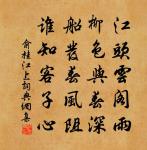 江頭雲閣雨
柳色與春深
船發春風阻
誰知客子心
俞桂江上詞典網集